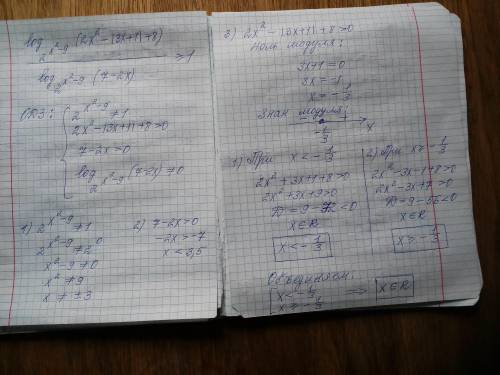 log_{2^{x²-9}} (2x² - |3x+1| + 8)
———————————— > 1
log_{2^{x²-9}} (7-2x)
ОДЗ:
2^{x²-9} ≠ 1
2x² - |3x+1| + 8 > 0
7-2x > 0
log_{2^{x²-9}} (7-2x) ≠ 0
1) 2^{x²-9} ≠ 1
2^{x²-9} ≠ 2^0
x²-9 ≠ 0
x² ≠ 9
x ≠ ±3
2) 7-2x > 0
-2x > -7
x < 3,5
3) 2x² - |3x+1| + 8 > 0
Ноль модуля:
3x+1 = 0
3x = -1
x = -1/3
Знак модуля:
- + x
-1/3
1) При x < -1/3
2x² + 3x + 1 + 8 > 0
2x² + 3x + 9 > 0
D = 9 - 72 < 0
x ∈ R
x < -1/3
2) При x ≥ -1/3
2x² - 3x - 1 + 8 > 0
2x² - 3x + 7 > 0
D = 9 - 56 < 0
x ∈ R
x ≥ -1/3
Объединяем:
x < -1/3
x ≥ -1/3 ⟹ x ∈ R